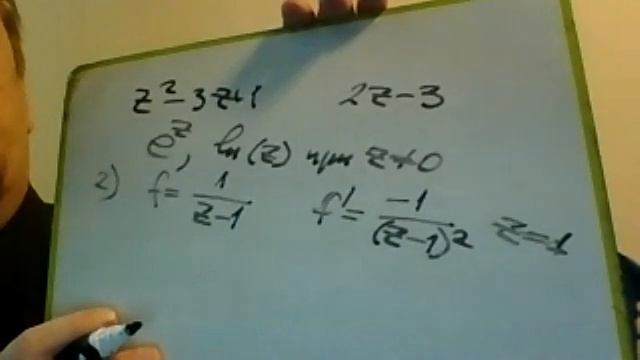 z² - 3z+1 2z - 3
e^z, ln(z) при z≠0
2) f = 1/(z-1) f' = -1/(z-1)² z=1